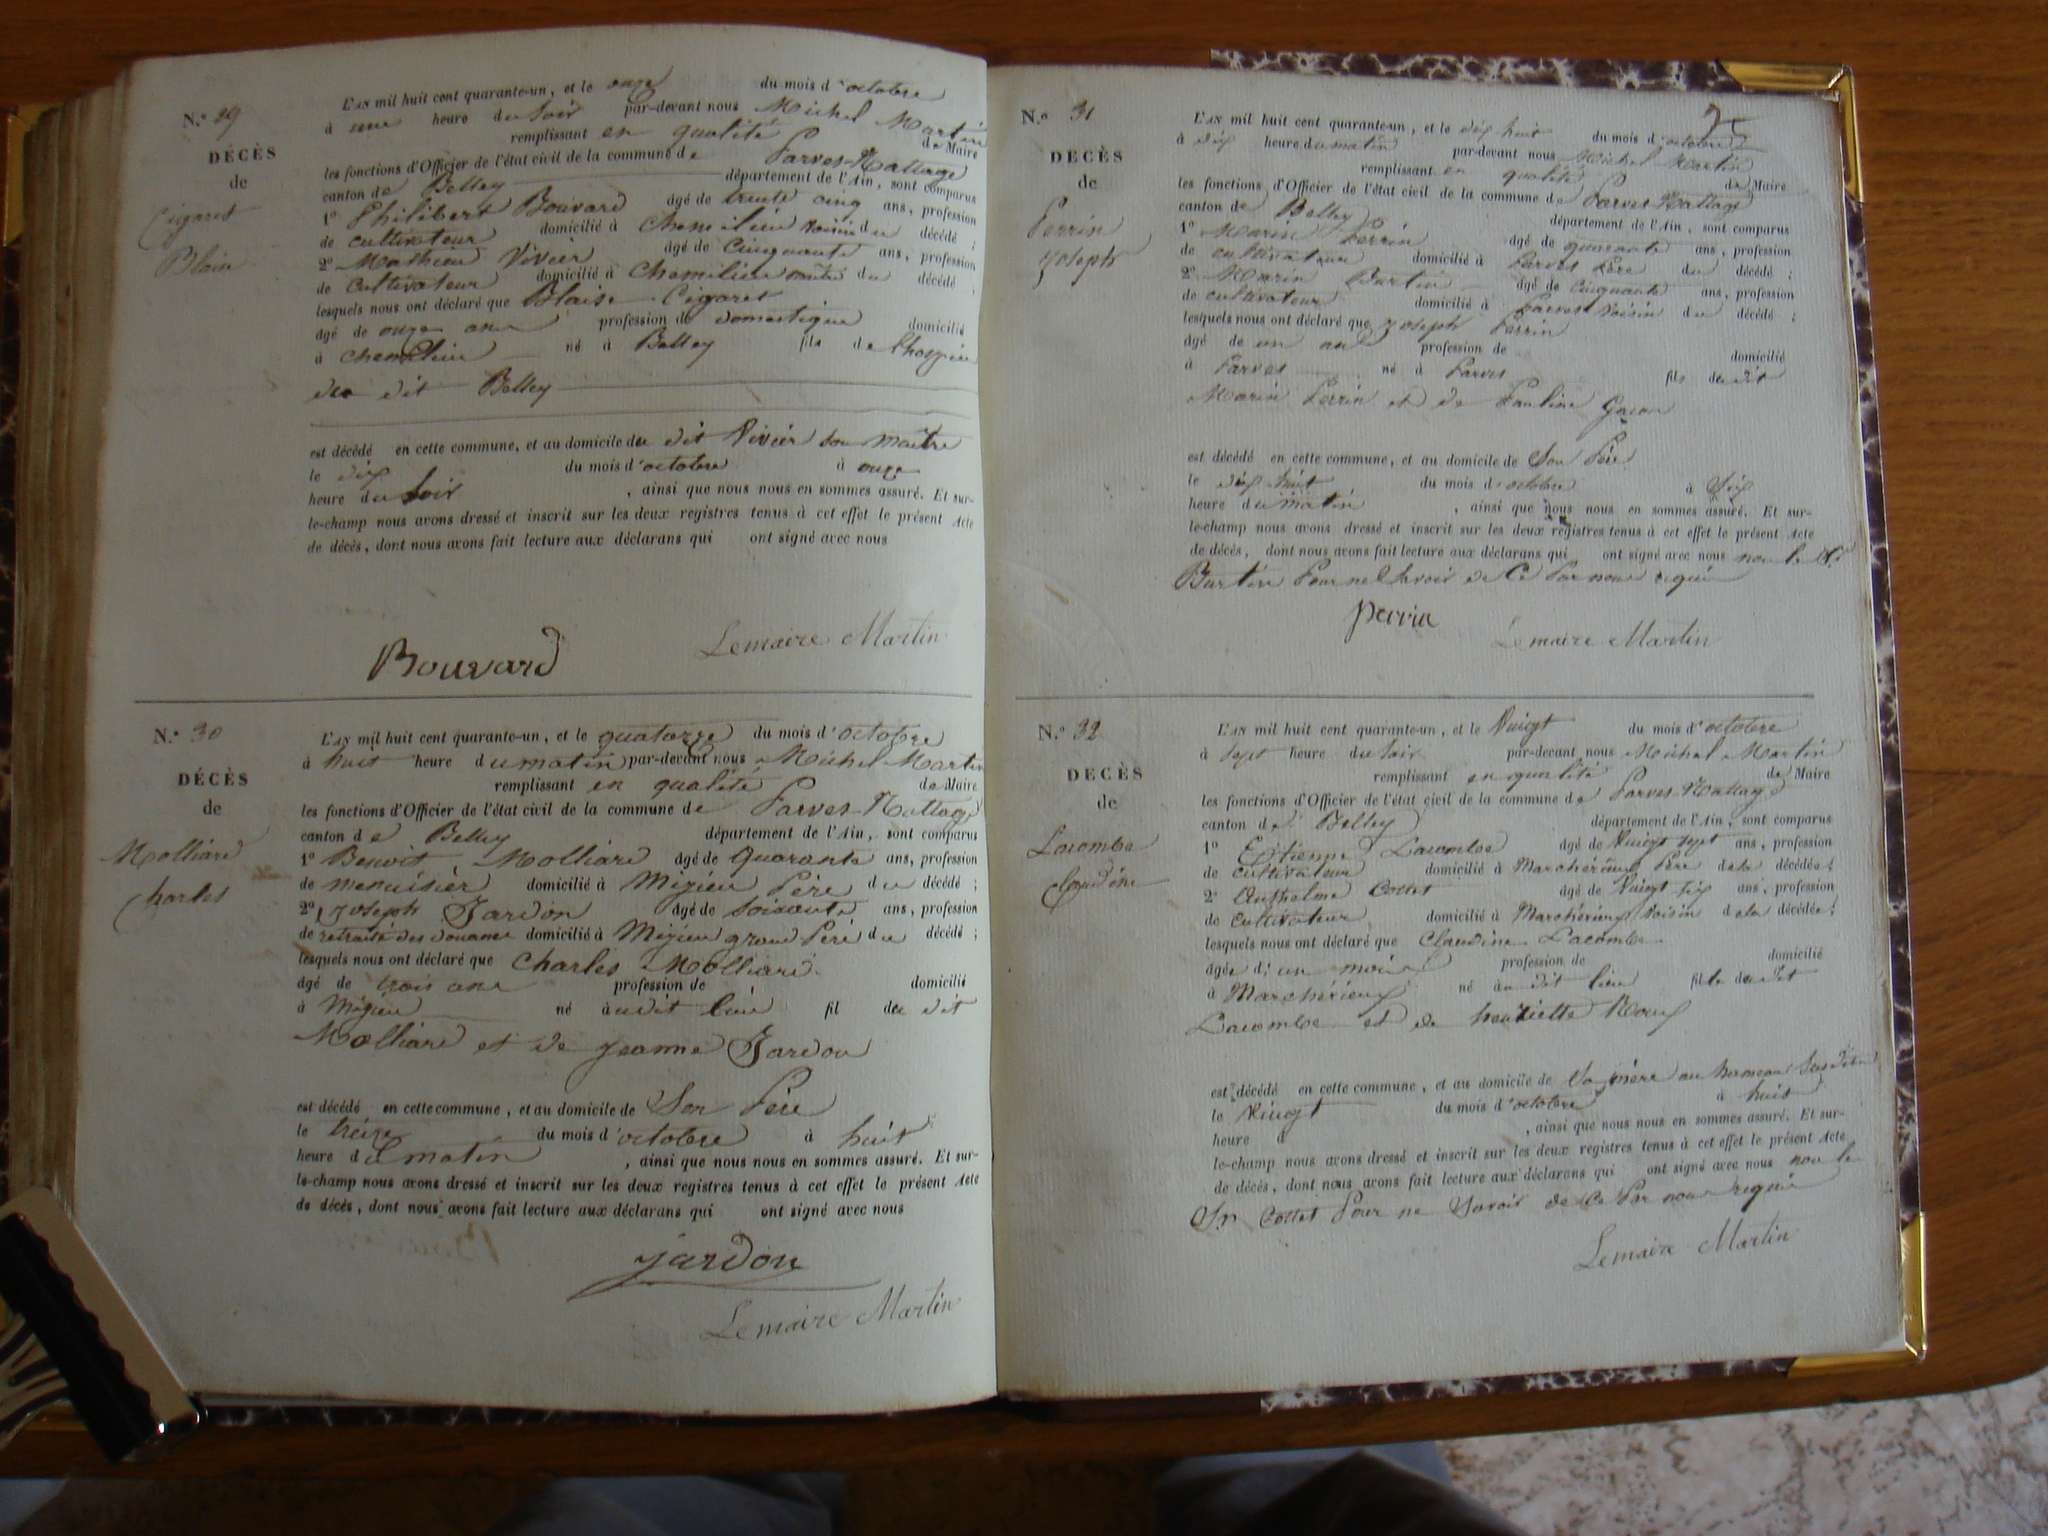 N.° 29
DÉCÈS
de
Cigaret
Blaise
L'AN mil huit cent quarante-un, et le onze du mois d'octobre
à une heure du soir par-devant nous Michel Martin
remplissant en qualité de Maire
les fonctions d'Officier de l'état civil de la commune de Parves-Nattage
canton de Belley département de l'Ain, sont comparus
1° Philibert Bouvard âgé de trente cinq ans, profession
de cultivateur domicilié à Chemilieu voisin du décédé ;
2° Mathieu Vivier âgé de cinquante ans, profession
de cultivateur domicilié à Chemilieu maître du décédé ;
lesquels nous ont déclaré que Blaise Cigaret
âgé de onze ans profession de domestique domicilié
à chemilieu né à Belley fils de l'hospice
du dit Belley
est décédé en cette commune, et au domicile du dit Vivier son maître
le dix du mois d'octobre à onze
heure du soir , ainsi que nous nous en sommes assuré. Et sur-
le-champ nous avons dressé et inscrit sur les deux registres tenus à cet effet le présent Acte
de décès, dont nous avons fait lecture aux déclarans qui ont signé avec nous
Bouvard Lemaire Martin
N.° 30
DÉCÈS
de
Molliard
Charles
L'AN mil huit cent quarante-un, et le quatorze du mois d'octobre
à huit heure du matin par-devant nous Michel Martin
remplissant en qualité de Maire
les fonctions d'Officier de l'état civil de la commune de Parves-Nattage
canton de Belley département de l'Ain, sont comparus
1° Benoit Molliard âgé de quarante ans, profession
de menuisier domicilié à Migieu Père du décédé ;
2° Joseph Jardon âgé de soixante ans, profession
de retraité des douanes domicilié à Migieu grand Père du décédé ;
lesquels nous ont déclaré que Charles Molliard
âgé de trois ans profession de domicilié
à Migieu né audit lieu fil du dit
Molliard et de jeanne Jardon
est décédé en cette commune, et au domicile de Son Père
le treize du mois d'octobre à huit
heure du matin , ainsi que nous nous en sommes assuré. Et sur-
le-champ nous avons dressé et inscrit sur les deux registres tenus à cet effet le présent Acte
de décès, dont nous avons fait lecture aux déclarans qui ont signé avec nous
jardon
Lemaire Martin
25
N.° 31
DECÈS
de
Perrin
Joseph
L'AN mil huit cent quarante-un, et le dix huit du mois d'octobre
à dix heure du matin par-devant nous Michel Martin
remplissant en qualité de Maire
les fonctions d'Officier de l'état civil de la commune de Parves-Nattage
canton de Belley département de l'Ain, sont comparus
1° Marin Perrin âgé de quarante ans, profession
de cultivateur domicilié à Parves Père du décédé ;
2° Marin Burtin âgé de cinquante ans, profession
de cultivateur domicilié à Parves Voisin du décédé ;
lesquels nous ont déclaré que Joseph Perrin
âgé de un an profession de domicilié
à Parves né à Parves fils du dit
Marin Perrin et de Pauline
est décédé en cette commune, et au domicile de Son Père
le dix huit du mois d'octobre à Six
heure du matin , ainsi que nous nous en sommes assuré. Et sur-
le-champ nous avons dressé et inscrit sur les deux registres tenus à cet effet le présent Acte
de décès, dont nous avons fait lecture aux déclarans qui ont signé avec nous non le Sr
Burtin Pour ne Savoir de Ce Par nous requis
perrin
Lemaire Martin
N.° 32
DECÈS
de
Lacombe
Claudine
L'AN mil huit cent quarante-un, et le Vuingt du mois d'octobre
à Sept heure du soir par-devant nous Michel Martin
remplissant en qualité de Maire
les fonctions d'Officier de l'état civil de la commune de Parves-Nattage
canton de Belley département de l'Ain, sont comparus
1° Etienne Lacombe âgé de Vuingt sept ans, profession
de cultivateur domicilié à Marchérieux Père de la décédée ;
2° Anthelme Cottet âgé de Vuingt six ans, profession
de Cultivateur domicilié à Marchérieux Voisin de la décédée ;
lesquels nous ont déclaré que Claudine Lacombe
âgée d'un mois profession de domicilié
à Marchérieux né au dit lieu fille du dit
Lacombe et de henriette Roux
est décédé en cette commune, et au domicile de Sa mère au hameau Sus dit
le Vuingt du mois d'octobre à huit
heure d , ainsi que nous nous en sommes assuré. Et sur-
le-champ nous avons dressé et inscrit sur les deux registres tenus à cet effet le présent Acte
de décès, dont nous avons fait lecture aux déclarans qui ont signé avec nous non le
Sr Cottet Pour ne Savoir de Ce Par nous requis
Lemaire Martin